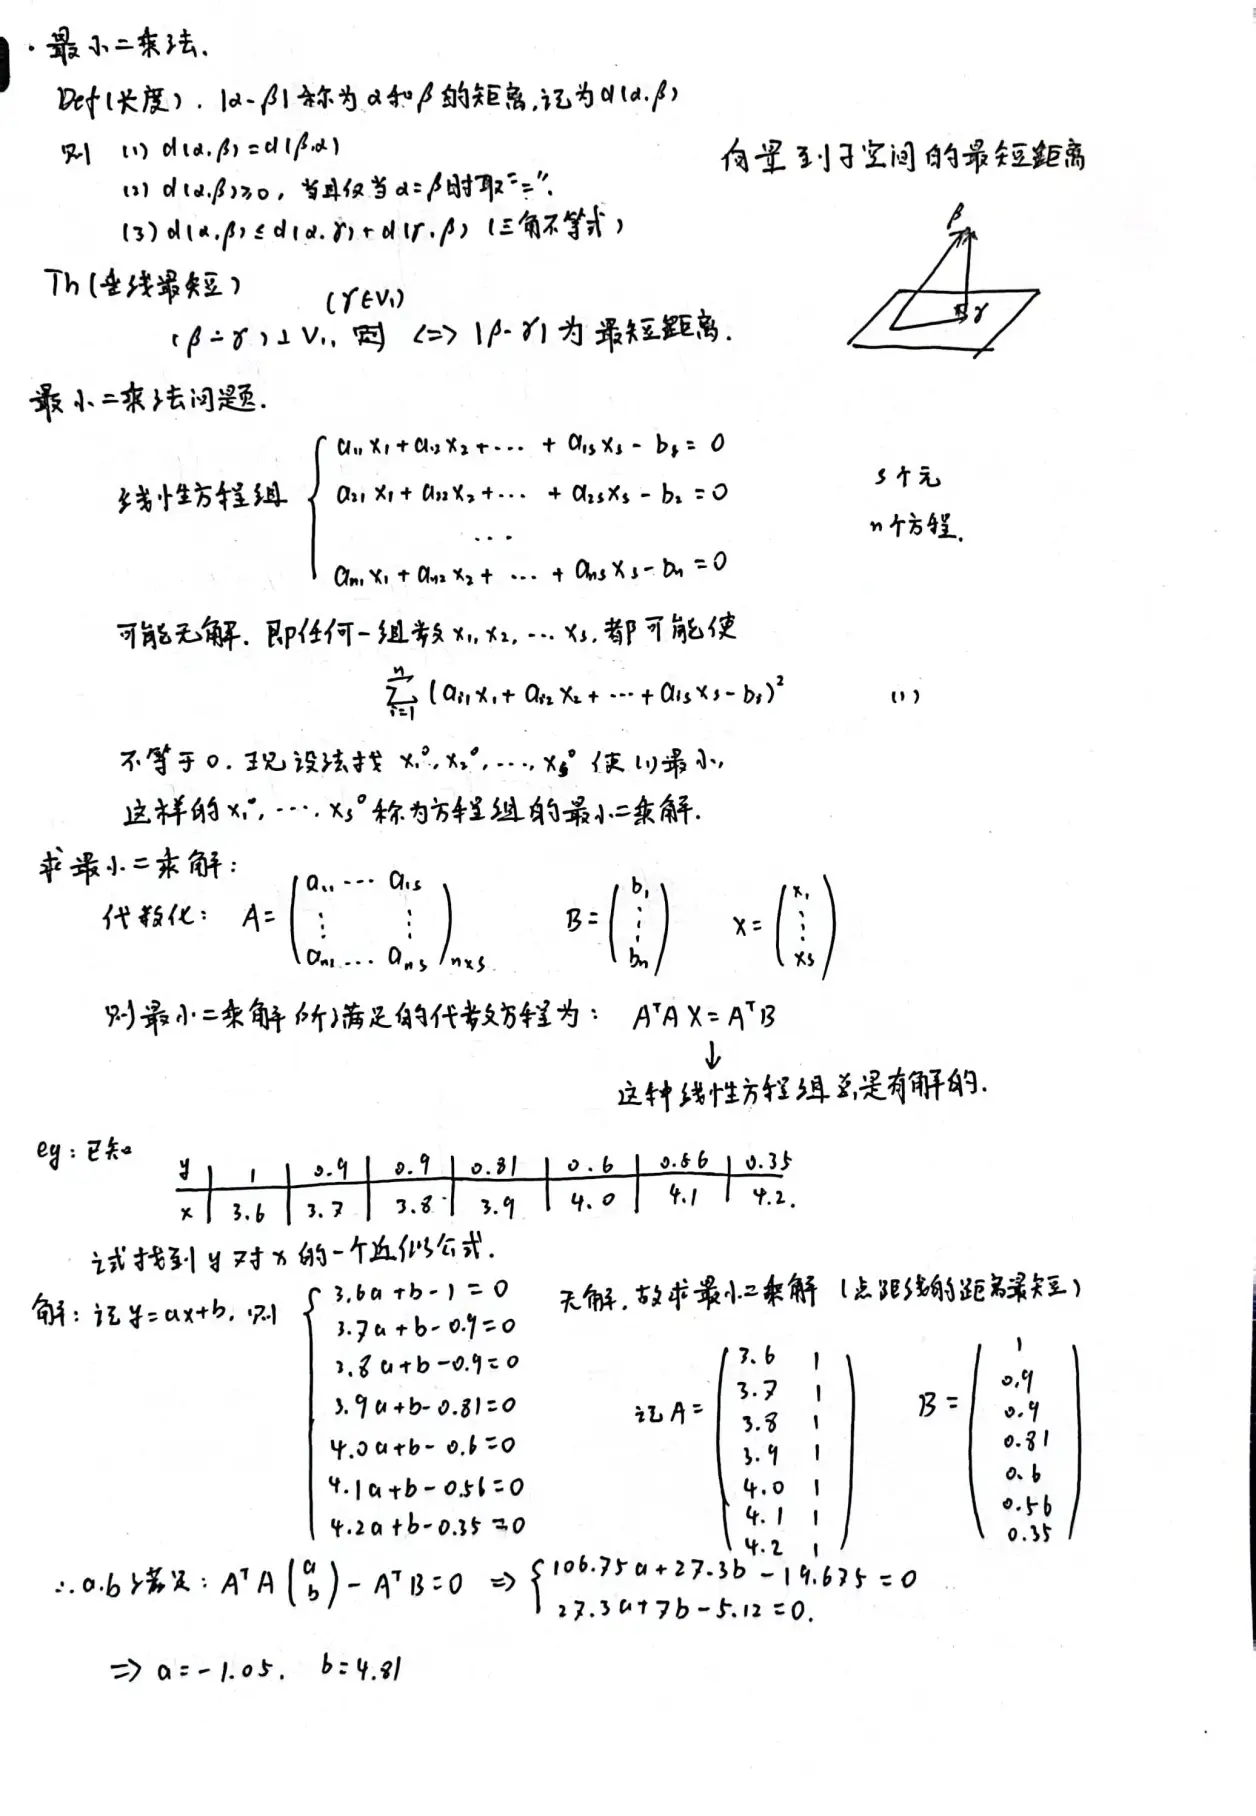 · 最小二乘法.
Def(长度). |α-β| 称为 α 和 β 的矩离,记为 d(α.β)
则 (1) d(α.β)=d(β.α)
(2) d(α.β)≥0, 当且仅当 α=β时取"=".
(3) d(α.β)≤d(α.γ)+d(γ.β) (三角不等式)
向量到子空间的最短距离
β
γ
Th(垂线最短)
(γ∈V₁)
(β-γ)⊥V₁, <=> |β-γ| 为最短距离.
最小二乘法问题.
线性方程组
a₁₁x₁+a₁₂x₂+… + a₁ₛxₛ - bₛ = 0
a₂₁x₁+a₂₂x₂+… + a₂ₛxₛ - b₂ = 0
…
aₙ₁x₁+aₙ₂x₂+ … + aₙₛxₛ - bₙ = 0
s个元
n个方程.
可能无解. 即任何一组数 x₁, x₂, … xₛ, 都可能使
∑ᵢ₌₁ⁿ (aᵢ₁x₁+aᵢ₂x₂+…+aᵢₛxₛ-bᵢ)² (1)
不等于0. 现设法找 x₁⁰, x₂⁰, …, xₛ⁰ 使(1)最小,
这样的 x₁⁰, …, xₛ⁰ 称为方程组的最小二乘解.
求最小二乘解:
代数化: A=(a₁₁ … a₁ₛ ⋮ ⋮ aₙ₁ … aₙₛ)ₙₓₛ B=(b₁ ⋮ bₙ) X=(x₁ ⋮ xₛ)
则最小二乘解所满足的代数方程为: AᵀAX=AᵀB
↓
这种线性方程组总是有解的.
eg: 已知
y | 1 | 0.9 | 0.9 | 0.81 | 0.6 | 0.56 | 0.35
x | 3.6 | 3.7 | 3.8 | 3.9 | 4.0 | 4.1 | 4.2.
试找到 y 对 x 的一个近似公式.
解: 记 y=ax+b, 则
3.6a+b-1=0
3.7a+b-0.9=0
3.8a+b-0.9=0
3.9a+b-0.81=0
4.0a+b-0.6=0
4.1a+b-0.56=0
4.2a+b-0.35=0
无解, 故求最小二乘解 (点距线的距离最短)
记 A=
3.6 1
3.7 1
3.8 1
3.9 1
4.0 1
4.1 1
4.2 1
B=
1
0.9
0.9
0.81
0.6
0.56
0.35
∴ a.b 满足: AᵀA(a b)-AᵀB=0 ⇒ { 106.75a+27.3b-19.675=0
27.3a+7b-5.12=0.
⇒ a=-1.05. b=4.81